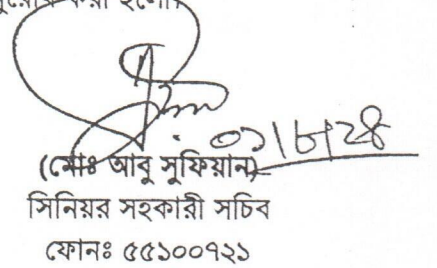 করা হলো।
০১/৮/২৪
(মোঃ আবু সুফিয়ান)
সিনিয়র সহকারী সচিব
ফোনঃ ৫৫১০০৭২১